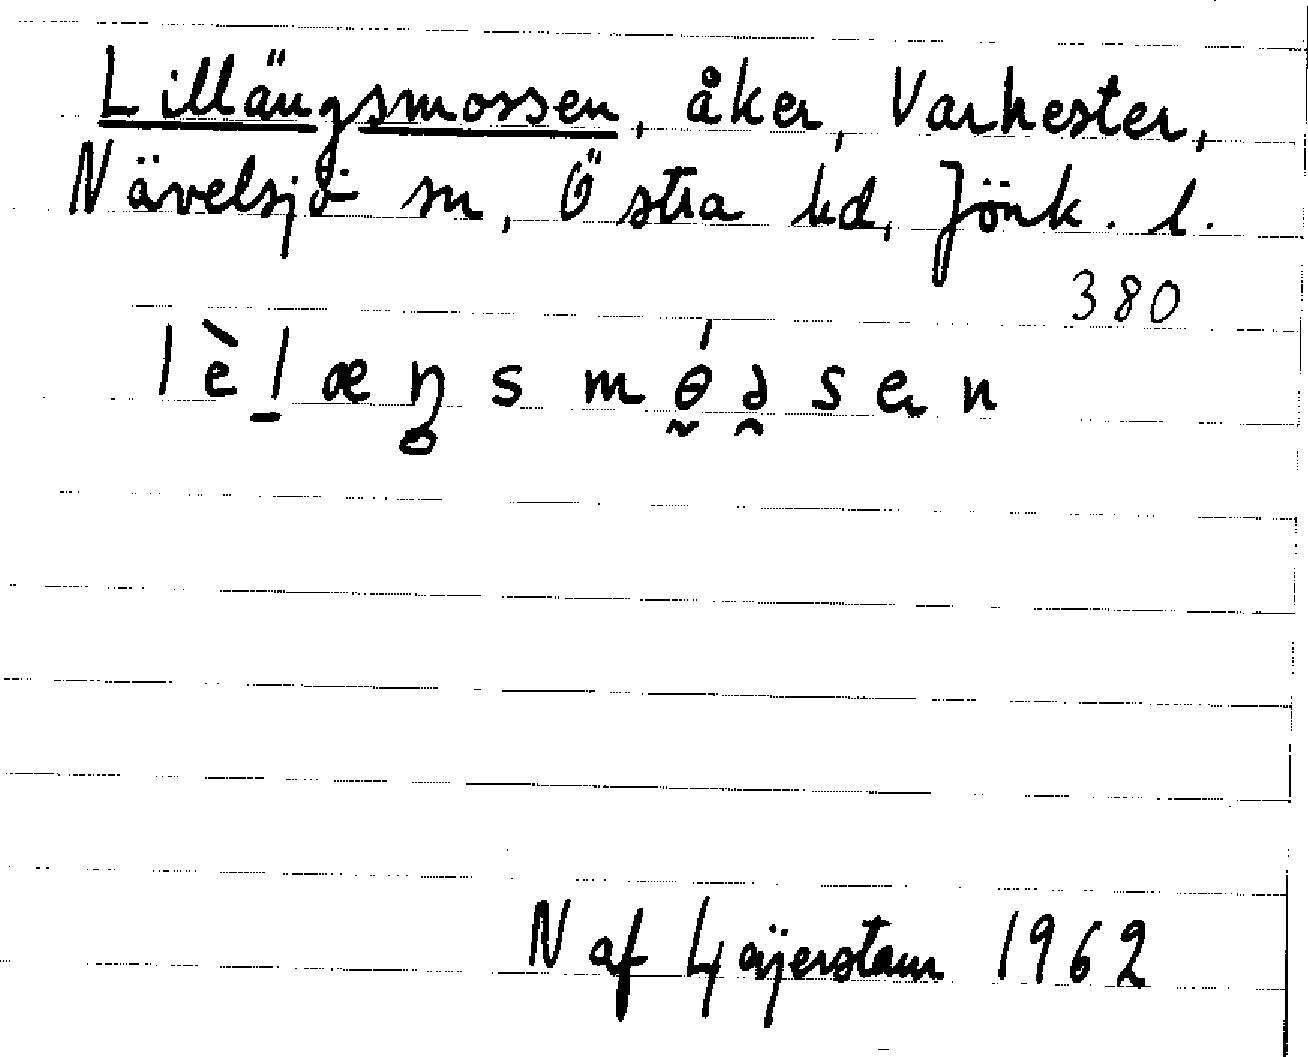 Lillängsmossen, åker, Varkester,
Nävelsjö sn, Östra hd, Jönk. l.
380
lèl̠æŋsmɵ́ə̯sen
N af Gejerstam 1962